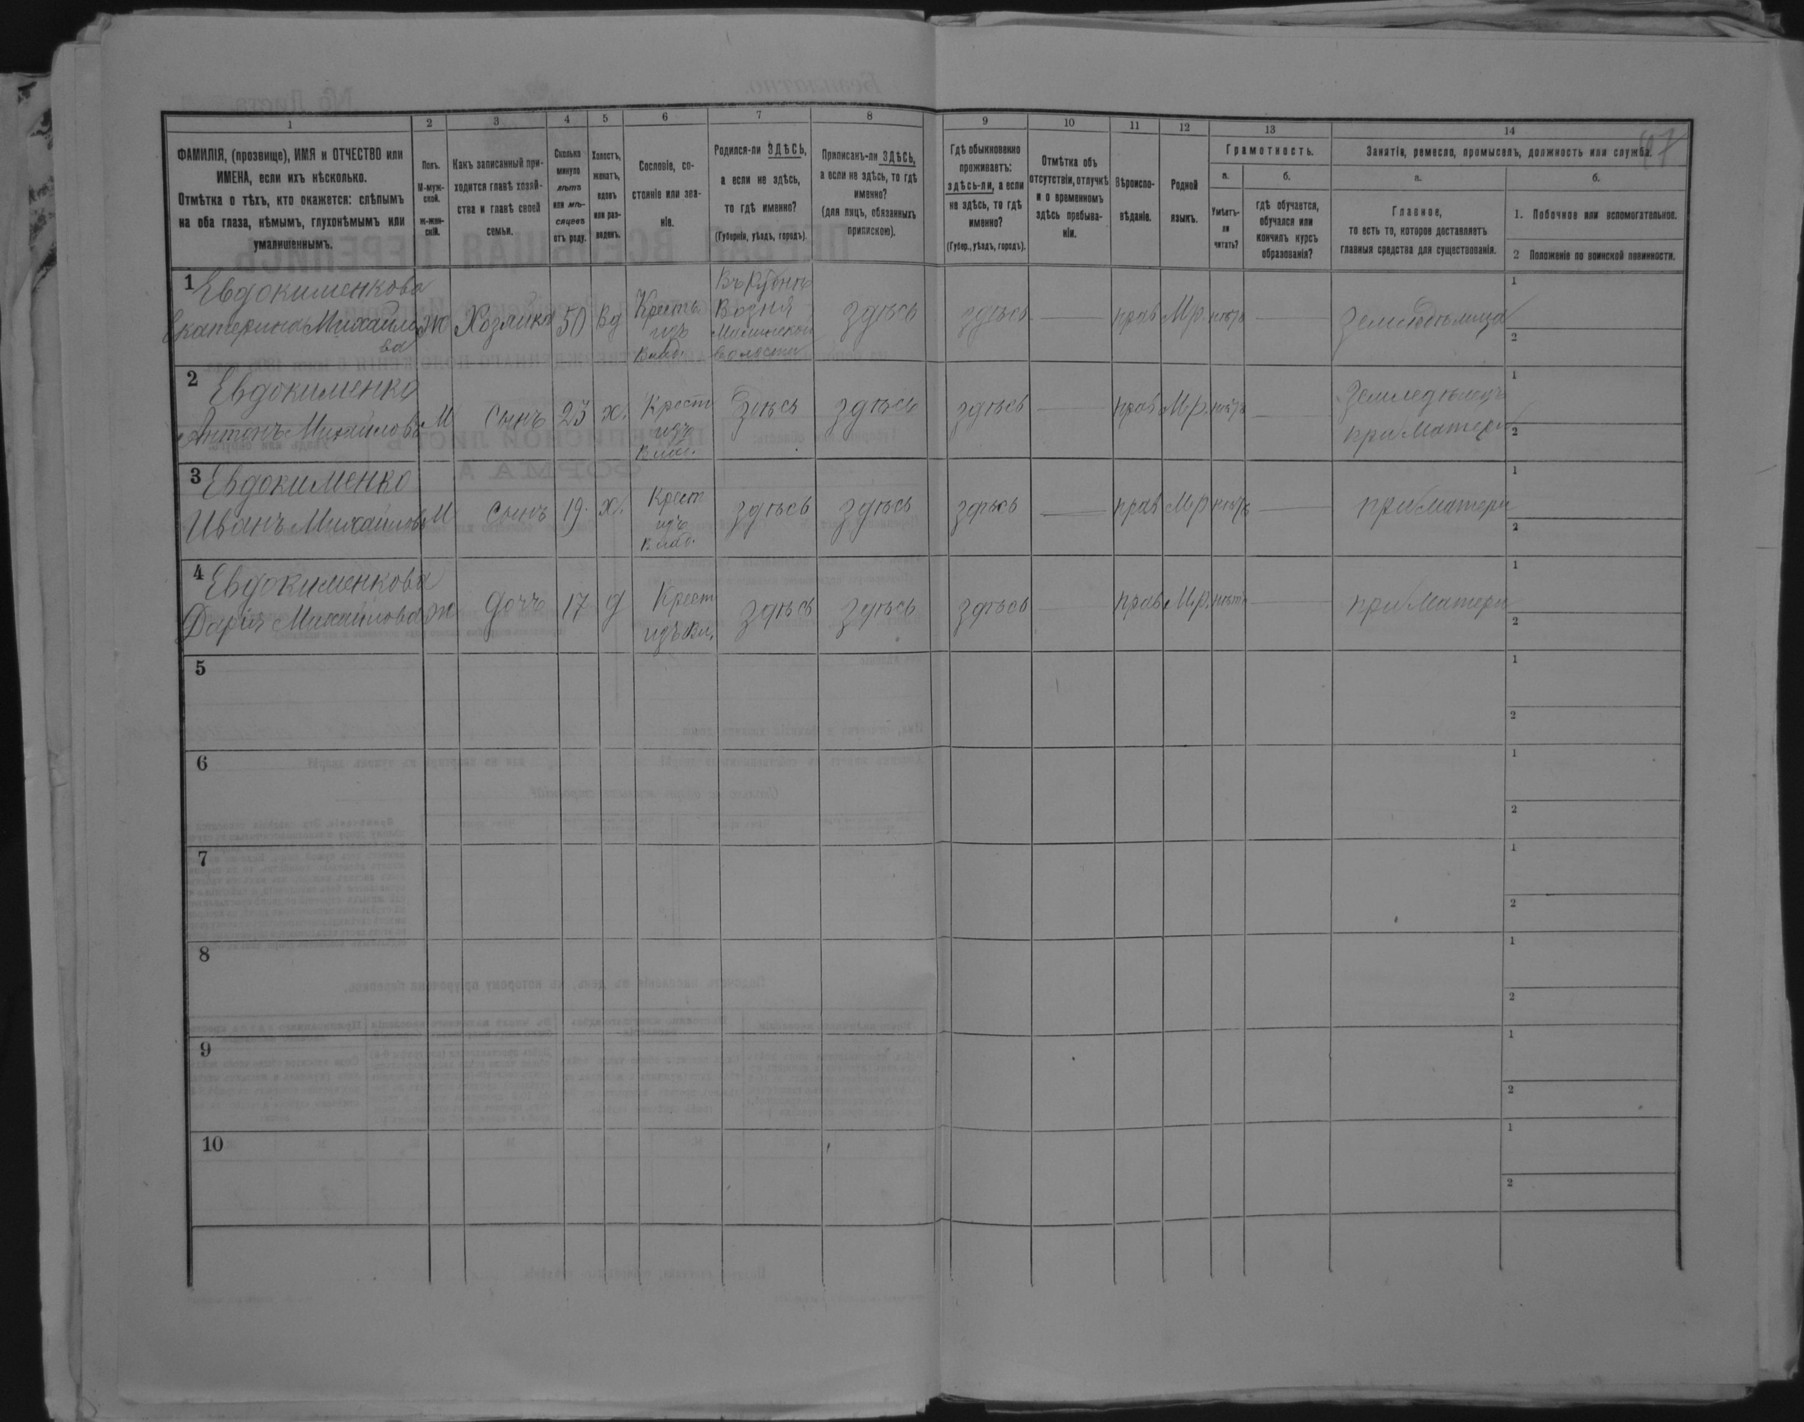 1 2 3 4 5 6 7 8 9 10 11 12 13 14
ФАМИЛІЯ, (прозвище), ИМЯ и ОТЧЕСТВО или
ИМЕНА, если ихъ нѣсколько.
Отмѣтка о тѣхъ, кто окажется: слѣпымъ
на оба глаза, нѣмымъ, глухонѣмымъ или
умалишеннымъ.
Полъ.
М-муж-
ской.
ж-жен-
скій.
Какъ записанный при-
ходится главѣ хозяй-
ства и главѣ своей
семьи.
Сколько
минуло
лѣтъ
или мѣ-
сяцевъ
отъ роду.
Холостъ,
женатъ,
вдовъ
или раз-
веденъ.
Сословіе, со-
стояніе или зва-
ніе.
Родился-ли ЗДѢСЬ,
а если не здѣсь,
то гдѣ именно?
(Губернія, уѣздъ, городъ).
Приписанъ-ли ЗДѢСЬ,
а если не здѣсь, то гдѣ
именно?
(для лицъ, обязанныхъ
припискою).
Гдѣ обыкновенно
проживаетъ:
здѣсь-ли, а если
не здѣсь, то гдѣ
именно?
(Губер., уѣздъ, городъ).
Отмѣтка объ
отсутствіи, отлучкѣ
и о временномъ
здѣсь пребыва-
ніи.
Вѣроиспо-
вѣданіе.
Родной
языкъ.
Грамотность.
а.
Умѣетъ-
ли
читать?
б.
гдѣ обучается,
обучался или
кончилъ курсъ
образованія?
Занятія, ремесло, промыселъ, должность или служба.
а.
Главное,
то есть то, которое доставляетъ
главныя средства для существованія.
б.
1. Побочное или вспомогательное.
2 Положеніе по воинской повинности.
1 Евдокименкова
Екатерина Михайло
ва
ж Хозяйка 50 вд
Крестъ
изъ
влад.
Возня
волости
здѣсь здѣсь — прав М.р. нѣтъ —
1
2
2 Евдокименко
Антонъ Михайловъ М Сынъ 23 х.
Крестъ
изъ
влад.
здѣсь здѣсь здѣсь — прав М.р. нѣтъ —
Земледѣлецъ
при матери
1
2
3 Евдокименко
Иванъ Михайловъ М Сынъ 19. х.
Крест
изъ
влад.
здѣсь здѣсь здѣсь — прав М.р. нѣтъ — при матери
1
2
4 Евдокименкова
Дарія Михайлова ж дочь 17 д
Крест
изъ вл.
здѣсь здѣсь здѣсь — прав М.р. нѣтъ — при матери
1
2
5
1
2
6
1
2
7
1
2
8
1
2
9
1
2
10
1
2